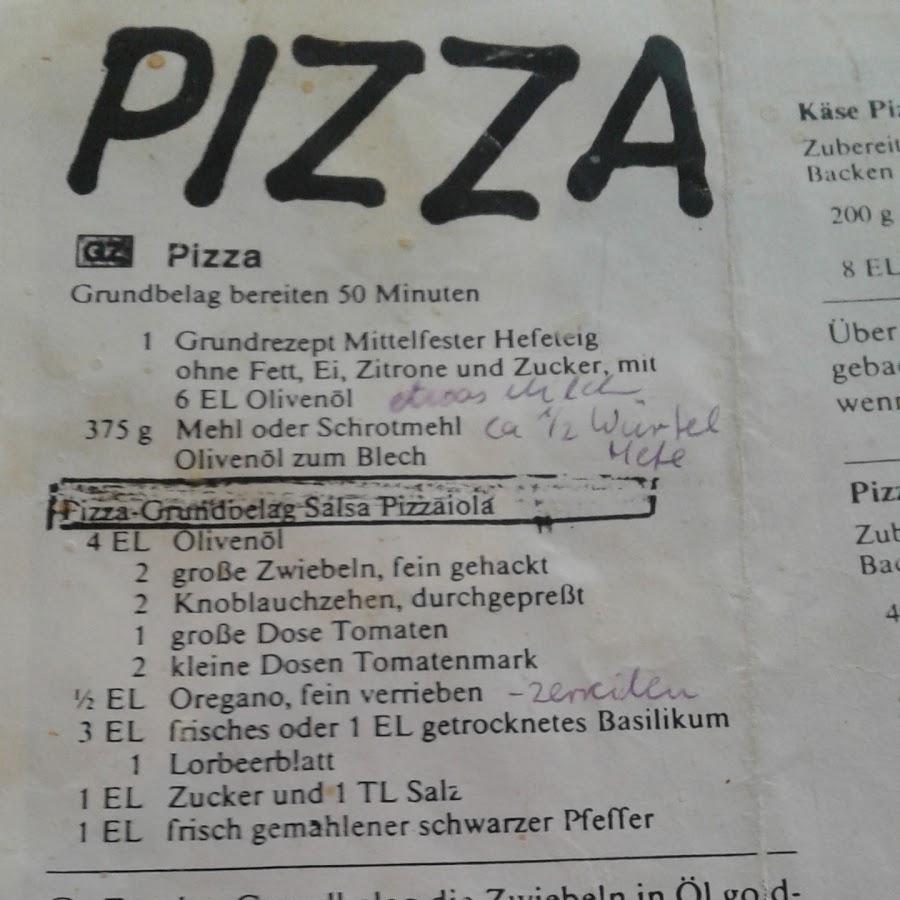 PIZZA
GZ Pizza
Grundbelag bereiten 50 Minuten
1 Grundrezept Mittelfester Hefeteig
ohne Fett, Ei, Zitrone und Zucker, mit
6 EL Olivenöl etwas Milch
375 g Mehl oder Schrotmehl ca 1/2 Würfel
Olivenöl zum Blech Hefe
Pizza-Grundbelag Salsa Pizzaiola
4 EL Olivenöl
2 große Zwiebeln, fein gehackt
2 Knoblauchzehen, durchgepreßt
1 große Dose Tomaten
2 kleine Dosen Tomatenmark
½ EL Oregano, fein verrieben - zerreiben
3 EL frisches oder 1 EL getrocknetes Basilikum
1 Lorbeerblatt
1 EL Zucker und 1 TL Salz
1 EL frisch gemahlener schwarzer Pfeffer
die Zwiebeln in Öl gold-
Käse Piz
Zubereit
Backen
200 g
8 EL
Über
geba
wenn
Pizz
Zub
Bac
4